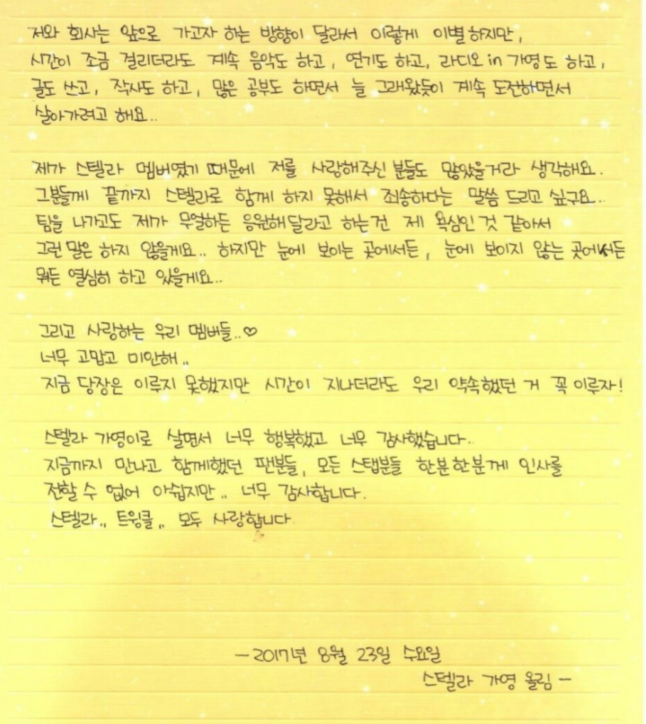 저와 회사는 앞으로 가고자 하는 방향이 달라서 이렇게 이별하지만,
시간이 조금 걸리더라도 계속 음악도 하고, 연기도 하고, 라디오 in 가영도 하고,
글도 쓰고, 작사도 하고, 많은 공부도 하면서 늘 그래왔듯이 계속 도전하면서
살아가려고 해요..
제가 스텔라 멤버였기 때문에 저를 사랑해주신 분들도 많았을거라 생각해요.
그분들께 끝까지 스텔라로 함께 하지 못해서 죄송하다는 말씀 드리고 싶구요..
팀을 나가고도 제가 무얼하든 응원해달라고 하는건 제 욕심인 것 같아서
그런 말은 하지 않을게요.. 하지만 눈에 보이는 곳에서든, 눈에 보이지 않는 곳에서든
뭐든 열심히 하고 있을게요..
그리고 사랑하는 우리 멤버들..♡
너무 고맙고 미안해..
지금 당장은 이루지 못했지만 시간이 지나더라도 우리 약속했던 거 꼭 이루자!
스텔라 가영이로 살면서 너무 행복했고 너무 감사했습니다..
지금까지 만나고 함께했던 팬분들, 모든 스탭분들 한분한분께 인사를
전할 수 없어 아쉽지만.. 너무 감사합니다.
스텔라.. 트윙클.. 모두 사랑합니다
-2017년 8월 23일 수요일
스텔라 가영 올림-